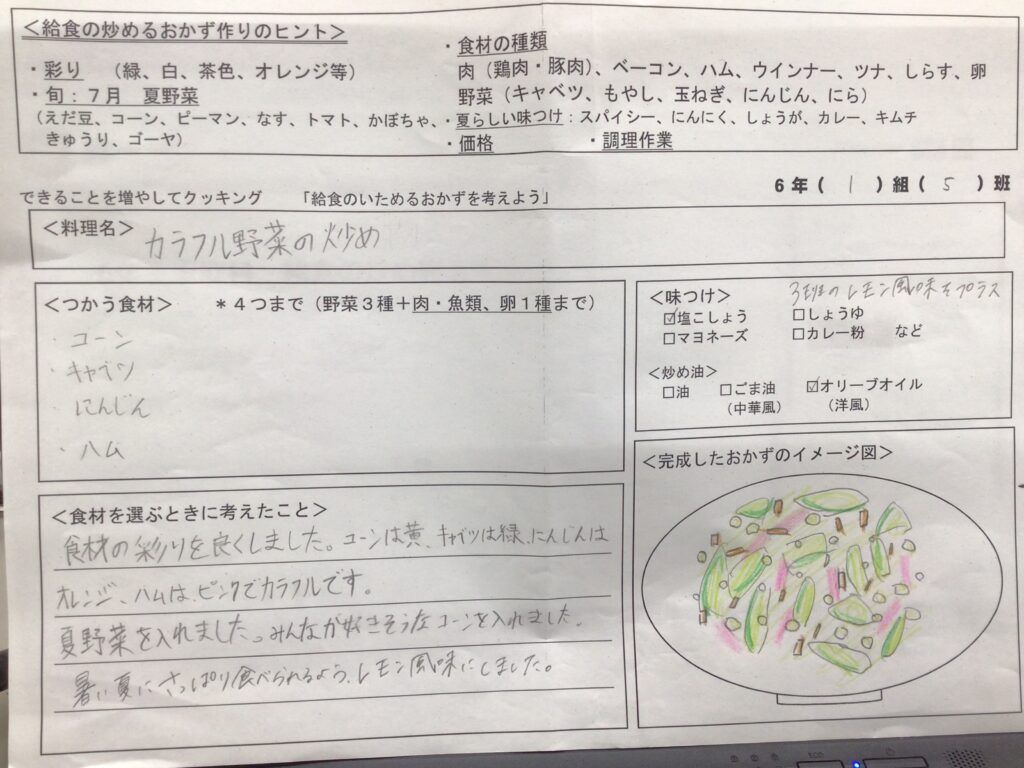 ＜給食の炒めるおかず作りのヒント＞
・彩り　（緑、白、茶色、オレンジ等）
・旬：７月　夏野菜
（えだ豆、コーン、ピーマン、なす、トマト、かぼちゃ、
きゅうり、ゴーヤ）
・食材の種類
肉（鶏肉・豚肉）、ベーコン、ハム、ウインナー、ツナ、しらす、卵
野菜（キャベツ、もやし、玉ねぎ、にんじん、にら）
・夏らしい味つけ：スパイシー、にんにく、しょうが、カレー、キムチ
・価格　　・調理作業
６年（１）組（５）班
できることを増やしてクッキング　「給食のいためるおかずを考えよう」
＜料理名＞カラフル野菜の炒め
＜つかう食材＞　＊４つまで（野菜３種＋肉・魚類、卵１種まで）
・コーン
・キャベツ
・にんじん
・ハム
＜味つけ＞　3班のレモン風味をプラス
☑塩こしょう　□しょうゆ
□マヨネーズ　□カレー粉　など
＜炒め油＞
□油　□ごま油　☑オリーブオイル
（中華風）　（洋風）
＜食材を選ぶときに考えたこと＞
食材の彩りを良くしました。コーンは黄、キャベツは緑、にんじんは
オレンジ、ハムは、ピンクでカラフルです。
夏野菜を入れました。みんなが好きそうなコーンを入れました。
暑い夏にさっぱり食べられるよう、レモン風味にしました。
＜完成したおかずのイメージ図＞
ECO